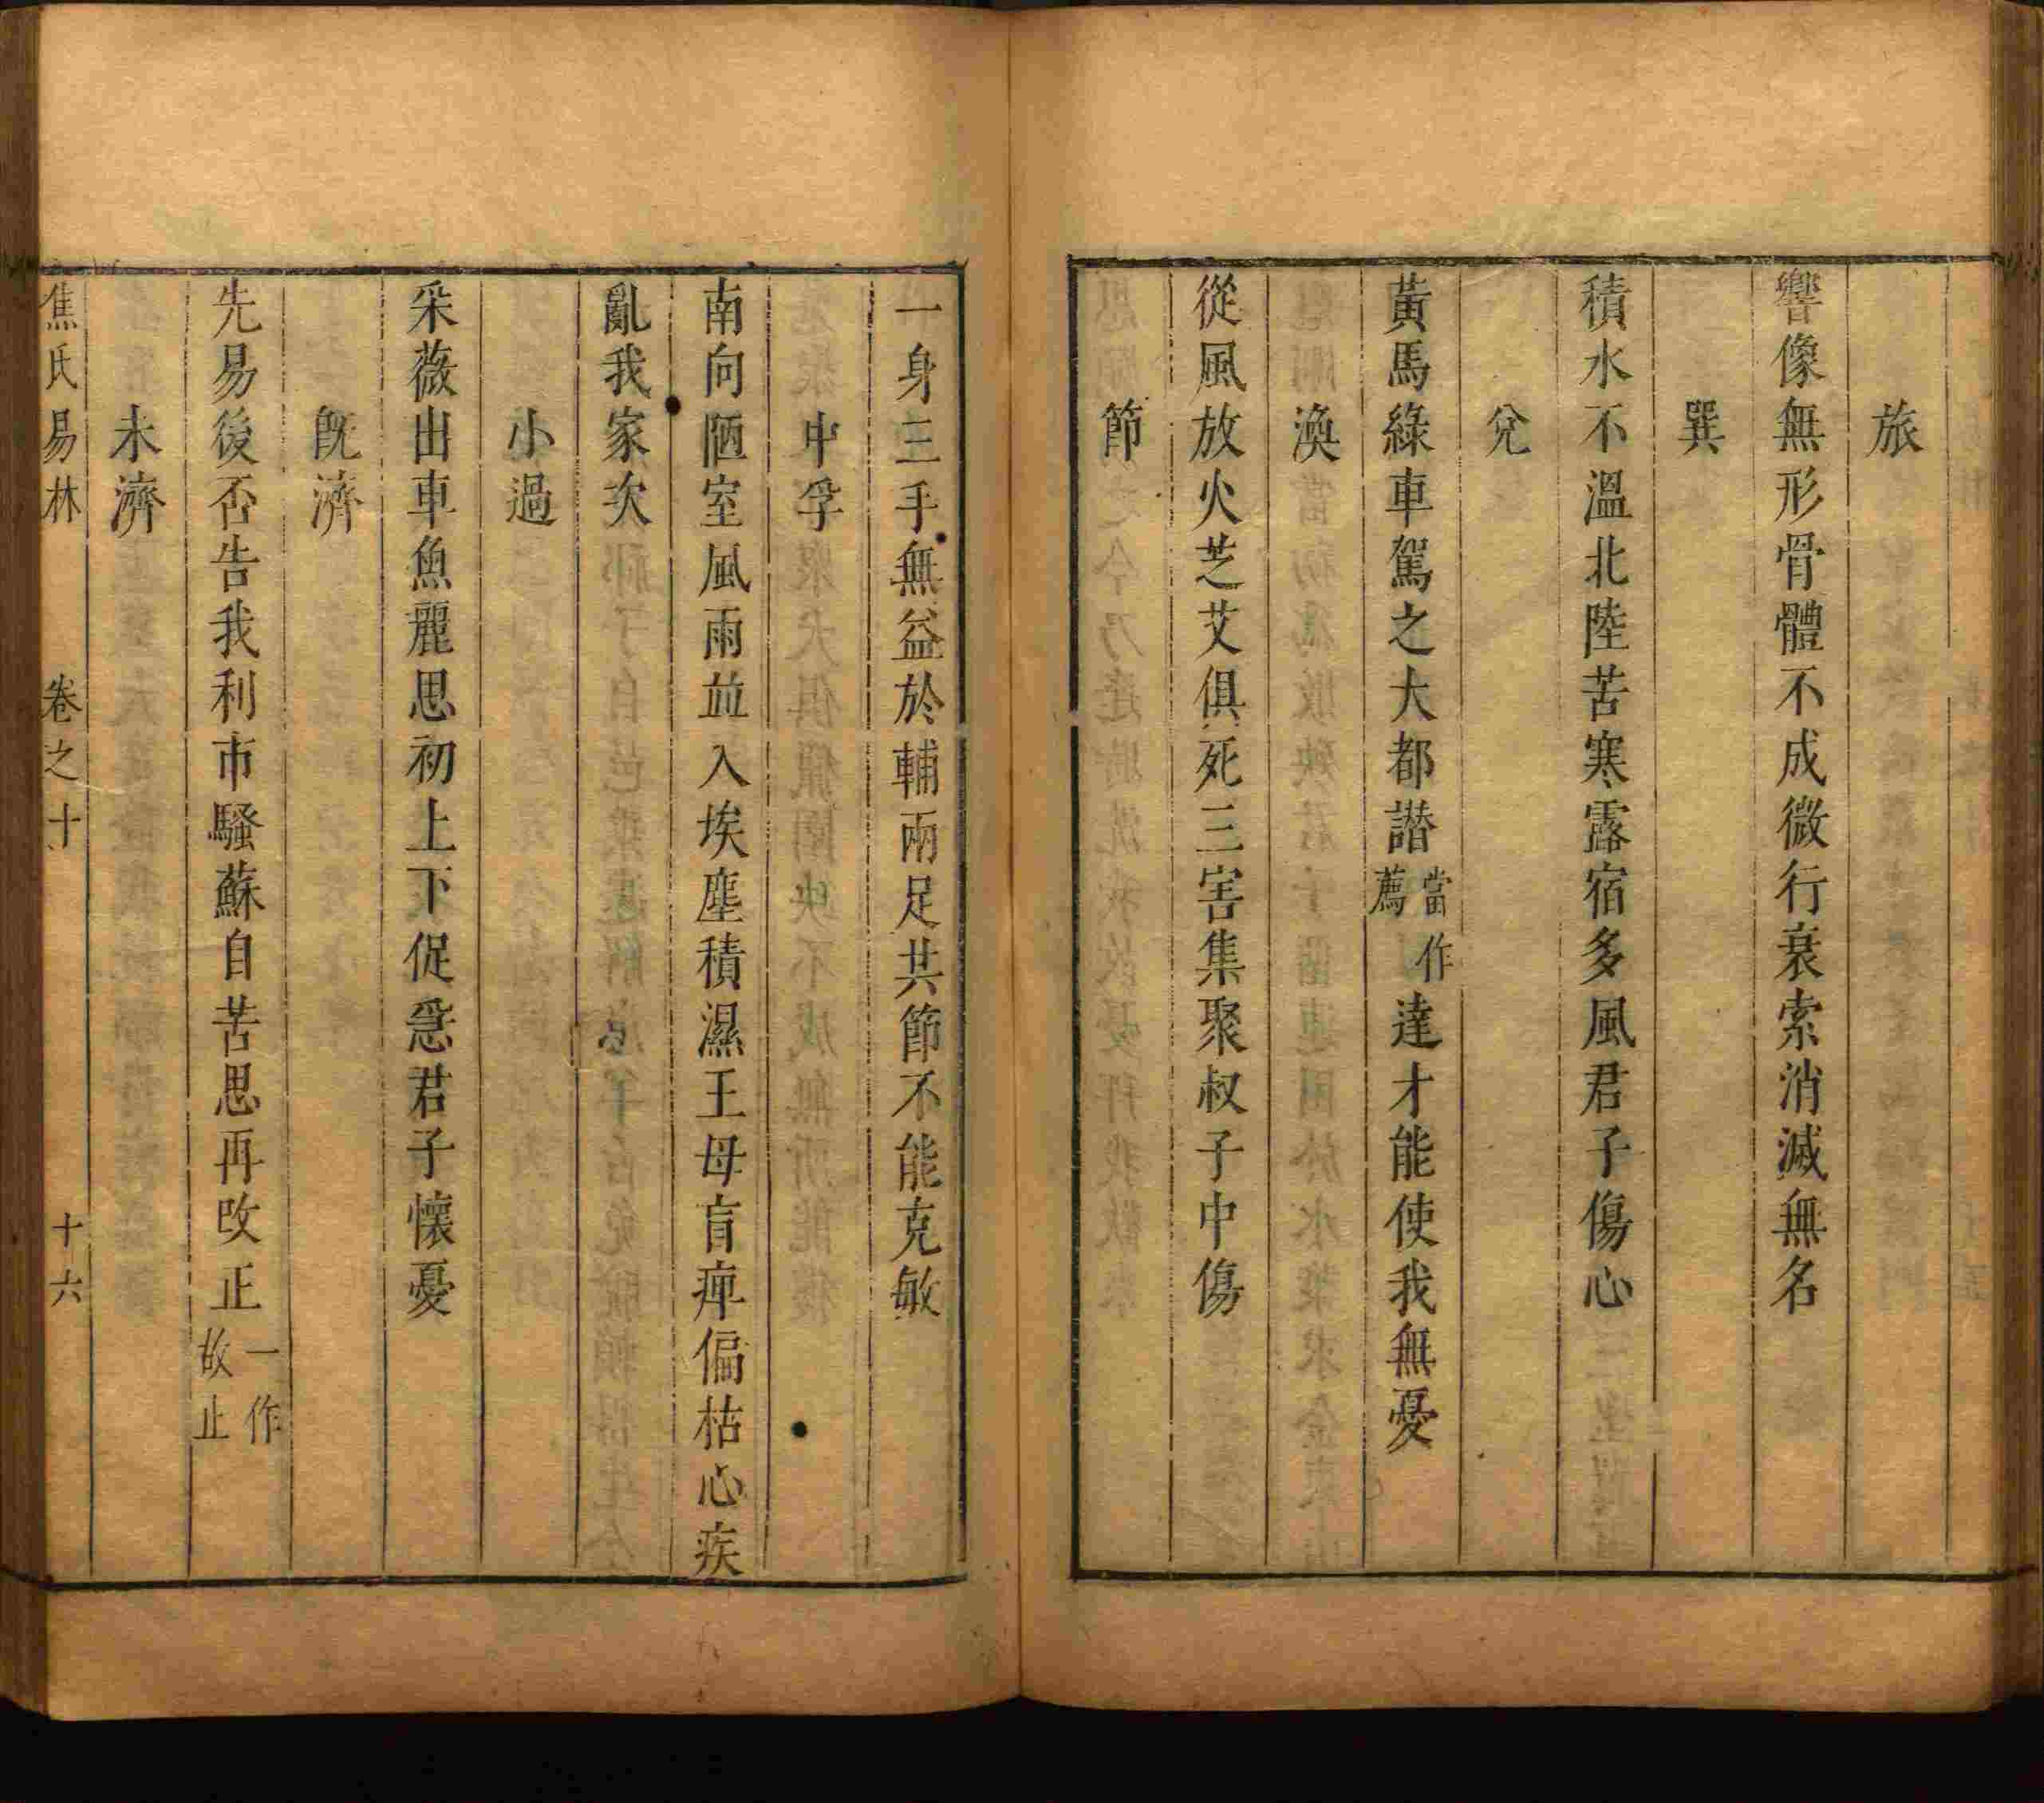 旅
響像無形骨體不成微行衰索消滅無名
巽
積水不溫北陸苦寒露宿多風君子傷心
兌
黃馬綠車駕之大都譖當作薦達才能使我無憂
渙
從風放火芝艾俱死三害集聚叔子中傷
節
一身三手無益於輔兩足共節不能克敏
中孚
南向陋室風雨並入埃塵積濕王母盲痺偏枯心疾
亂我家次
小過
采薇出車魚麗思初上下促急君子懷憂
旣濟
先易後否告我利市騷蘇自苦思再改正一作故止
未濟
焦氏易林 卷之十 十六